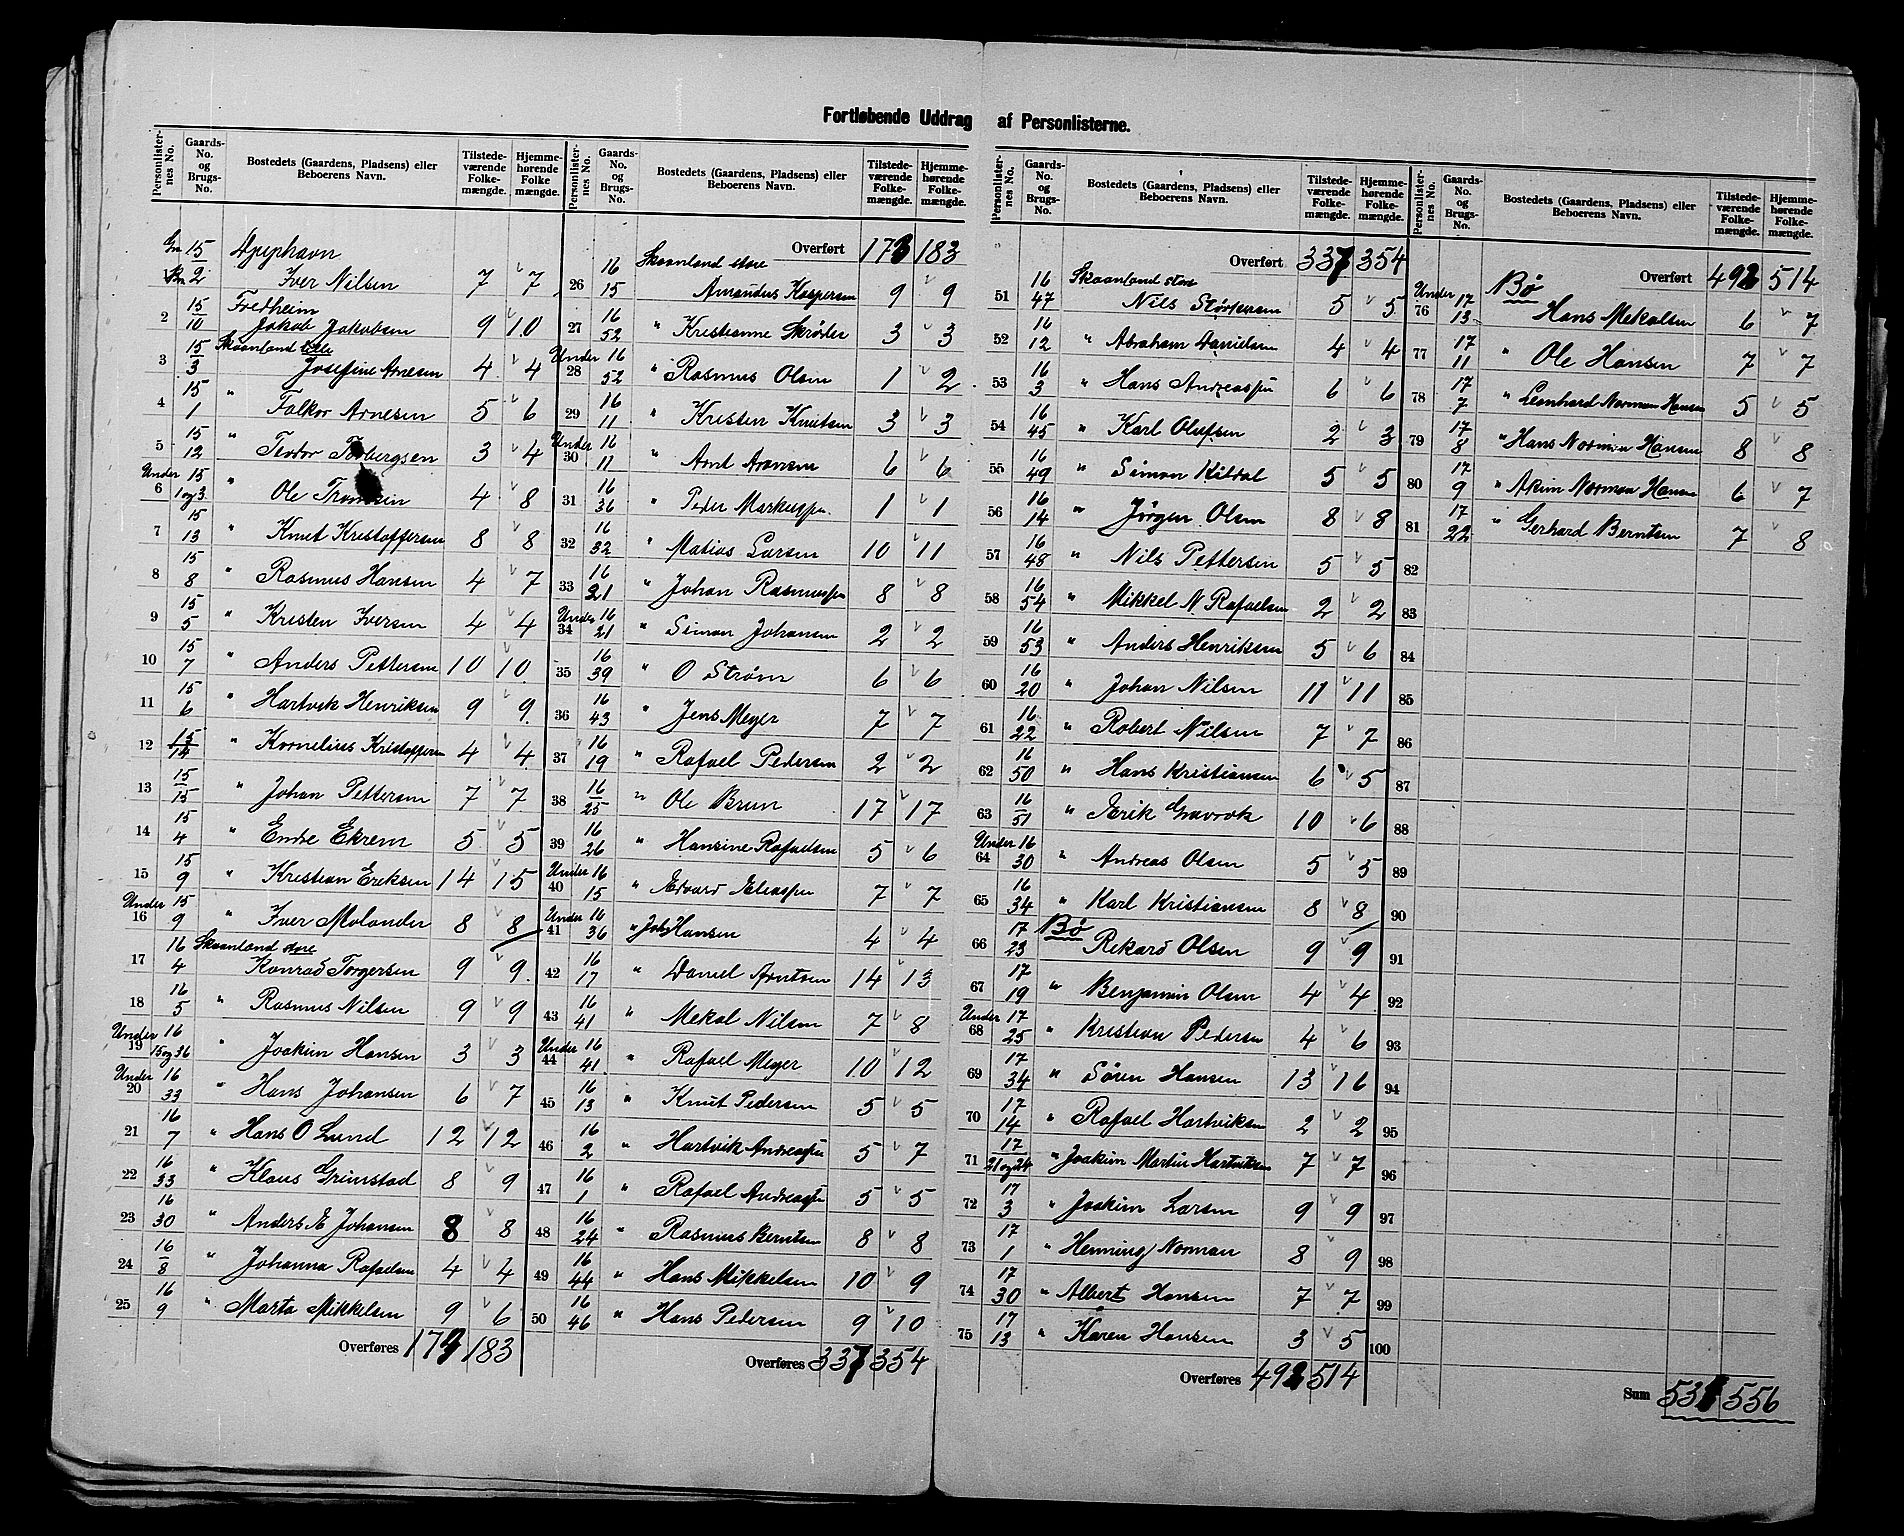 Fortløbende Uddrag af Personlisterne.
Personlisternes No. Gaards-No. og Brugs-No. Bostedets (Gaardens, Pladsens) eller Beboerens Navn. Tilstedeværende Folkemængde. Hjemmehørende Folkemængde.
Gn 15 Dypehavn
1 Bn 2 Iver Nilsen 7 7
15 Fredheim
2 10 Jakob Jakobsen 9 10
15 Skaanland lille
3 3 Josefine Arnesen 4 4
4 15/1 " Falkor Arnesen 5 6
5 15/12 " Teodor Torbergsen 3 4
Under 6 15/1 og 3 " Ole 4 8
7 15/13 " Knut Kristoffersen 8 8
8 15/8 " Rasmus Hansen 4 7
9 15/5 " Kristen Iversen 4 4
10 15/7 " Anders Pettersen 10 10
11 15/6 " Hartvik Henriksen 9 9
12 15/14 " Kornelius Kristoffersen 4 4
13 15/15 " Johan Pettersen 7 7
14 15/4 " Endre Ekrem 5 5
15 15/9 " Kristian Ereksen 14 15
Under 16 15/9 " Iver Molander 8 8
16 Skaanland store
17 4 Konrad Torgersen 9 9
18 16/5 " Rasmus Nilsen 9 9
Under 19 16/15 og 36 " Joakim Hansen 3 3
Under 20 16/33 " Hans Johansen 6 7
21 16/7 " Hans O Lund 12 12
22 16/33 " Klaus Grimstad 8 9
23 16/30 " Anders E Johansen 8 8
24 16/8 " Johanna Rafaelsen 4 4
25 16/9 " Marta Mikkelsen 9 6
Overføres 173 183
Personlisternes No. Gaards-No. og Brugs-No. Bostedets (Gaardens, Pladsens) eller Beboerens Navn. Tilstedeværende Folkemængde. Hjemmehørende Folkemængde.
Overført 173 183
16 Skaanland store
26 15 Amandus Kaspersen 9 9
27 16/52 " Kristianne Skrøder 3 3
Under 28 16/52 " Rasmus Olsen 1 2
29 16/11 " Kristen Knutsen 3 3
Under 30 16/11 " Arnt Aronsen 6 6
31 16/36 " Peder Markussen 1 1
32 16/32 " Matias Larsen 10 11
33 16/21 " Johan Rasmussen 8 8
Under 34 16/21 " Simon Johansen 2 2
35 16/39 " O Strøm 6 6
36 16/43 " Jens Meyer 7 7
37 16/19 " Rafael Pedersen 2 2
38 16/25 " Ole Brun 17 17
39 16/26 " Hansine Rafaelsen 5 6
Under 40 16/15 " Edvard Eliassen 7 7
Under 41 16/36 " Joh Hansen 4 4
42 16/17 " Daniel Arntsen 14 13
43 16/41 " Mekal Nilsen 7 8
Under 44 16/41 " Rafael Meyer 10 12
45 16/13 " Knut Pedersen 5 5
46 16/2 " Hartvik Andreassen 5 7
47 16/1 " Rafael Andreassen 5 5
48 16/24 " Rasmus Berntsen 8 8
49 16/44 " Hans Mikkelsen 10 9
50 16/46 " Hans Pedersen 9 10
Overføres 337 354
Personlisternes No. Gaards-No. og Brugs-No. Bostedets (Gaardens, Pladsens) eller Beboerens Navn. Tilstedeværende Folkemængde. Hjemmehørende Folkemængde.
Overført 337 354
16 Skaanland store
51 47 Nils Størtesen 5 5
52 16/12 " Abraham Danielsen 4 4
53 16/3 " Hans Andreassen 6 6
54 16/45 " Karl Olufsen 2 3
55 16/49 " Simon Kildal 5 5
56 16/14 " Jørgen Olsen 8 8
57 16/48 " Nils Pettersen 5 5
58 16/54 " Mikkel N Rafaelsen 2 2
59 16/53 " Anders Henriksen 5 6
60 16/20 " Johan Nilsen 11 11
61 16/22 " Robert Nilsen 7 7
62 16/50 " Hans Kristiansen 6 5
63 16/51 " Erik Gravrok 10 6
Under 64 16/30 " Andreas Olsen 5 5
65 16/34 " Karl Kristiansen 8 8
17 Bø
66 23 Rekard Olsen 9 9
67 17/19 " Benjamin Olsen 4 4
Under 68 17/25 " Kristian Pedersen 4 6
69 17/34 " Søren Hansen 13 16
70 17/14 " Rafael Hartviksen 2 2
71 17/21 og 24 " Joakim Martin Hartviksen 7 7
72 17/3 " Joakim Larsen 9 9
73 17/1 " Henning Norman 8 9
74 17/30 " Albert Hansen 7 7
75 17/13 " Karen Hansen 3 5
Overføres 492 514
Personlisternes No. Gaards-No. og Brugs-No. Bostedets (Gaardens, Pladsens) eller Beboerens Navn. Tilstedeværende Folkemængde. Hjemmehørende Folkemængde.
Overført 492 514
Under 17 Bø
76 13 Hans Mekalsen 6 7
77 17/11 " Ole Hansen 7 7
78 17/7 " Leonhard Norman Hansen 5 5
79 17/8 " Hans Norman Hansen 8 8
80 17/9 " Akim Norman Hansen 6 7
81 17/22 " Gerhard Berntsen 7 8
82
83
84
85
86
87
88
89
90
91
92
93
94
95
96
97
98
99
100
Sum 531 556